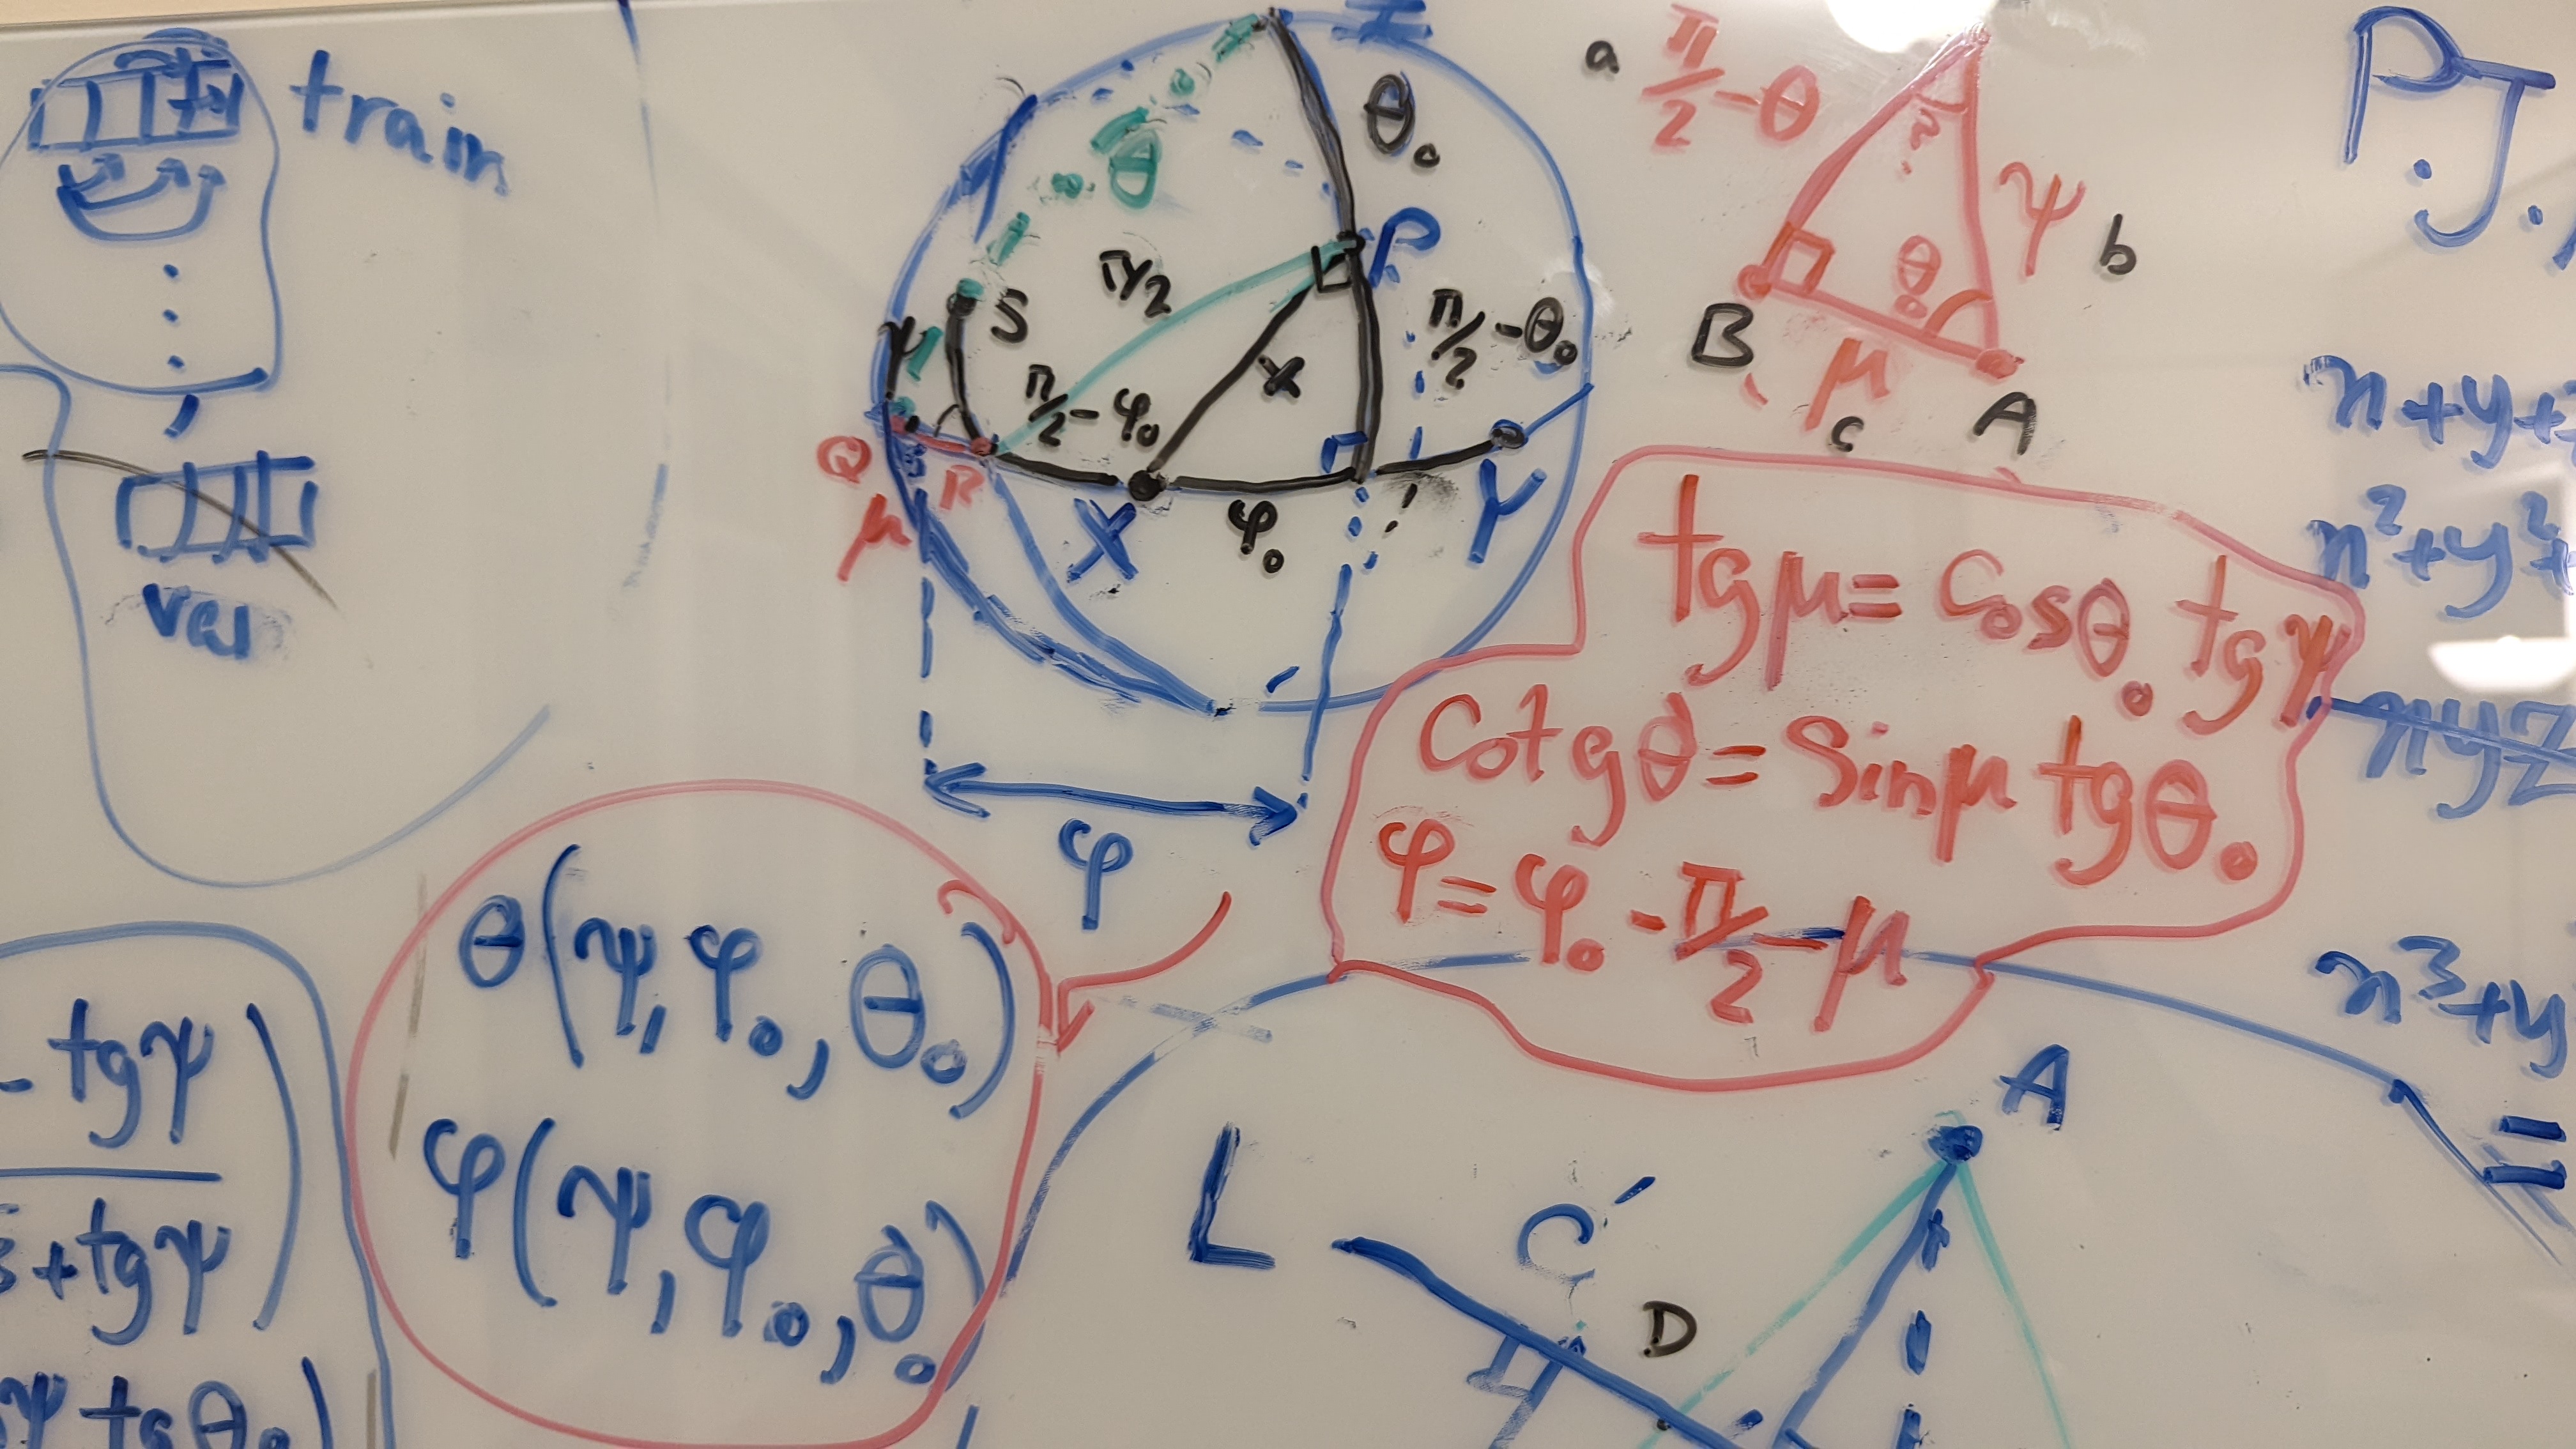 train
val
Z
θ₀
θ
P
π/2
S
ψ
π/2 - φ₀
x
π/2 - θ₀
Q
R
μ
X
φ₀
Y
φ
a
π/2 - θ
?
ψ
b
θ₀
B
μ
c
A
tgμ = Cosθ₀ tgψ
Cotgθ = Sinμ tgθ₀
φ = φ₀ - π/2 - μ
θ(ψ, φ₀, θ₀)
φ(ψ, φ₀, θ₀)
- tgψ
+ tgψ
ψ tgθ₀)
P.J.
x+y+
x²+y²+
xyz
x³+y
=
A
L
C′
D